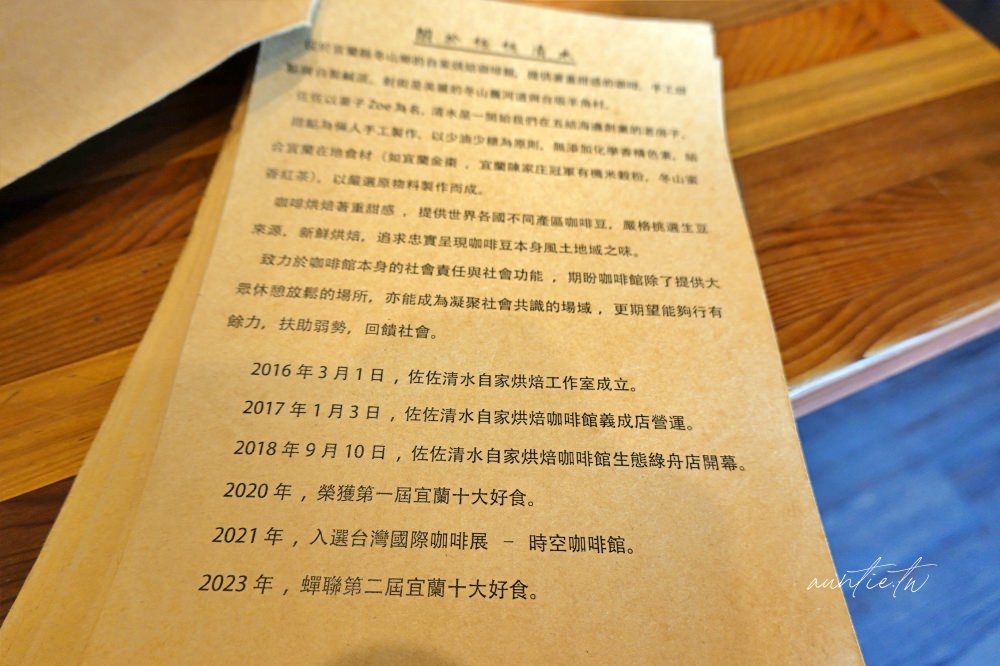 關於佐佐清水
位於宜蘭縣冬山鄉的自家烘焙咖啡館，提供著重甜感的咖啡，手工甜
點與自製鹹派，對街是美麗的冬山舊河道與台版羊角村。
佐佐以妻子Zoe為名，清水是一開始我們在五結海邊創業的老房子。
甜點為個人手工製作，以少油少糖為原則，無添加化學香精色素，結
合宜蘭在地食材（如宜蘭金棗，宜蘭陳家庄冠軍有機米穀粉，冬山蜜
香紅茶），以嚴選原物料製作而成。
咖啡烘焙著重甜感，提供世界各國不同產區咖啡豆，嚴格挑選生豆
來源，新鮮烘焙，追求忠實呈現咖啡豆本身風土地域之味。
致力於咖啡館本身的社會責任與社會功能，期盼咖啡館除了提供大
眾休憩放鬆的場所，亦能成為凝聚社會共識的場域，更期望能夠行有
餘力，扶助弱勢，回饋社會。
2016年3月1日，佐佐清水自家烘焙工作室成立。
2017年1月3日，佐佐清水自家烘焙咖啡館義成店營運。
2018年9月10日，佐佐清水自家烘焙咖啡館生態綠舟店開幕。
2020年，榮獲第一屆宜蘭十大好食。
2021年，入選台灣國際咖啡展 – 時空咖啡館。
2023年，蟬聯第二屆宜蘭十大好食。
auntie.tw